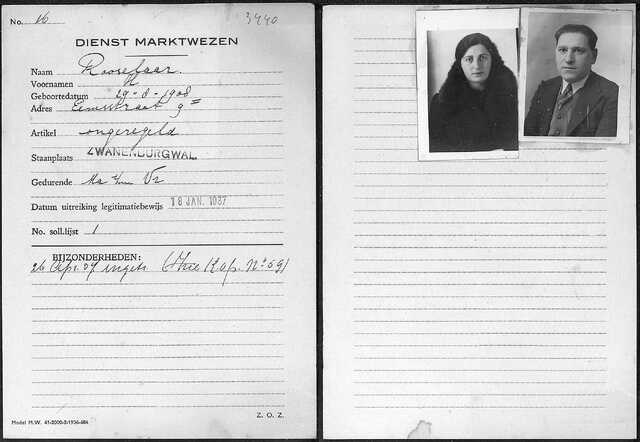 No. 16 3440
DIENST MARKTWEZEN
Naam Roosefaar.
Voornamen
Geboortedatum 29-8-1908
Adres Eemstraat 9
Artikel ongeregeld
Staanplaats ZWANENBURGWAL.
Gedurende Ma t/m Vr
Datum uitreiking legitimatiebewijs 18 JAN. 1937
No. soll.lijst 1
BIJZONDERHEDEN:
26 Apr. 37 ingetr.
Z. O. Z.
Model M.W. 41-2000-2-1936-684